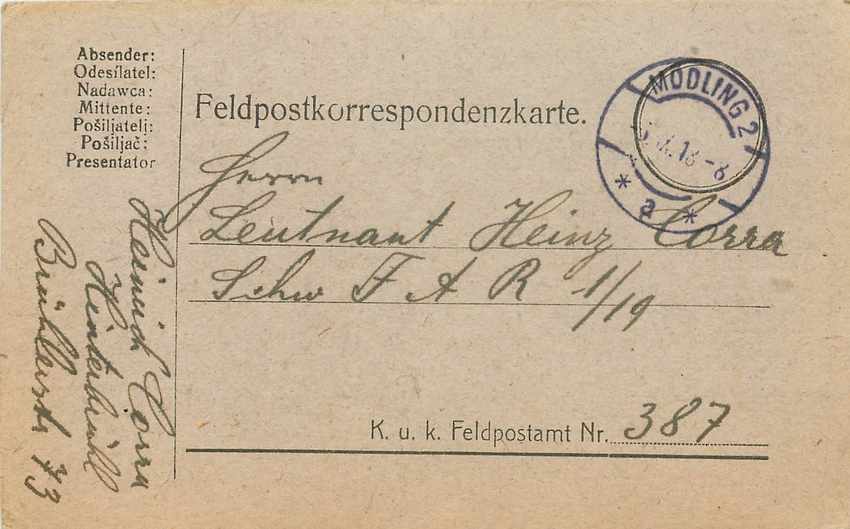 Absender:
Odesílatel:
Nadawca:
Mittente:
Pošiljatelj:
Pošiljač:
Presentator
Feldpostkorrespondenzkarte.
MÖDLING 2
18-8
* a *
Herrn
Leutnant Heinz Corra
Schw F A R 1/19
K. u. k. Feldpostamt Nr. 387
Heinrich Corra
Hinterbrühl
Brühlerstr 73